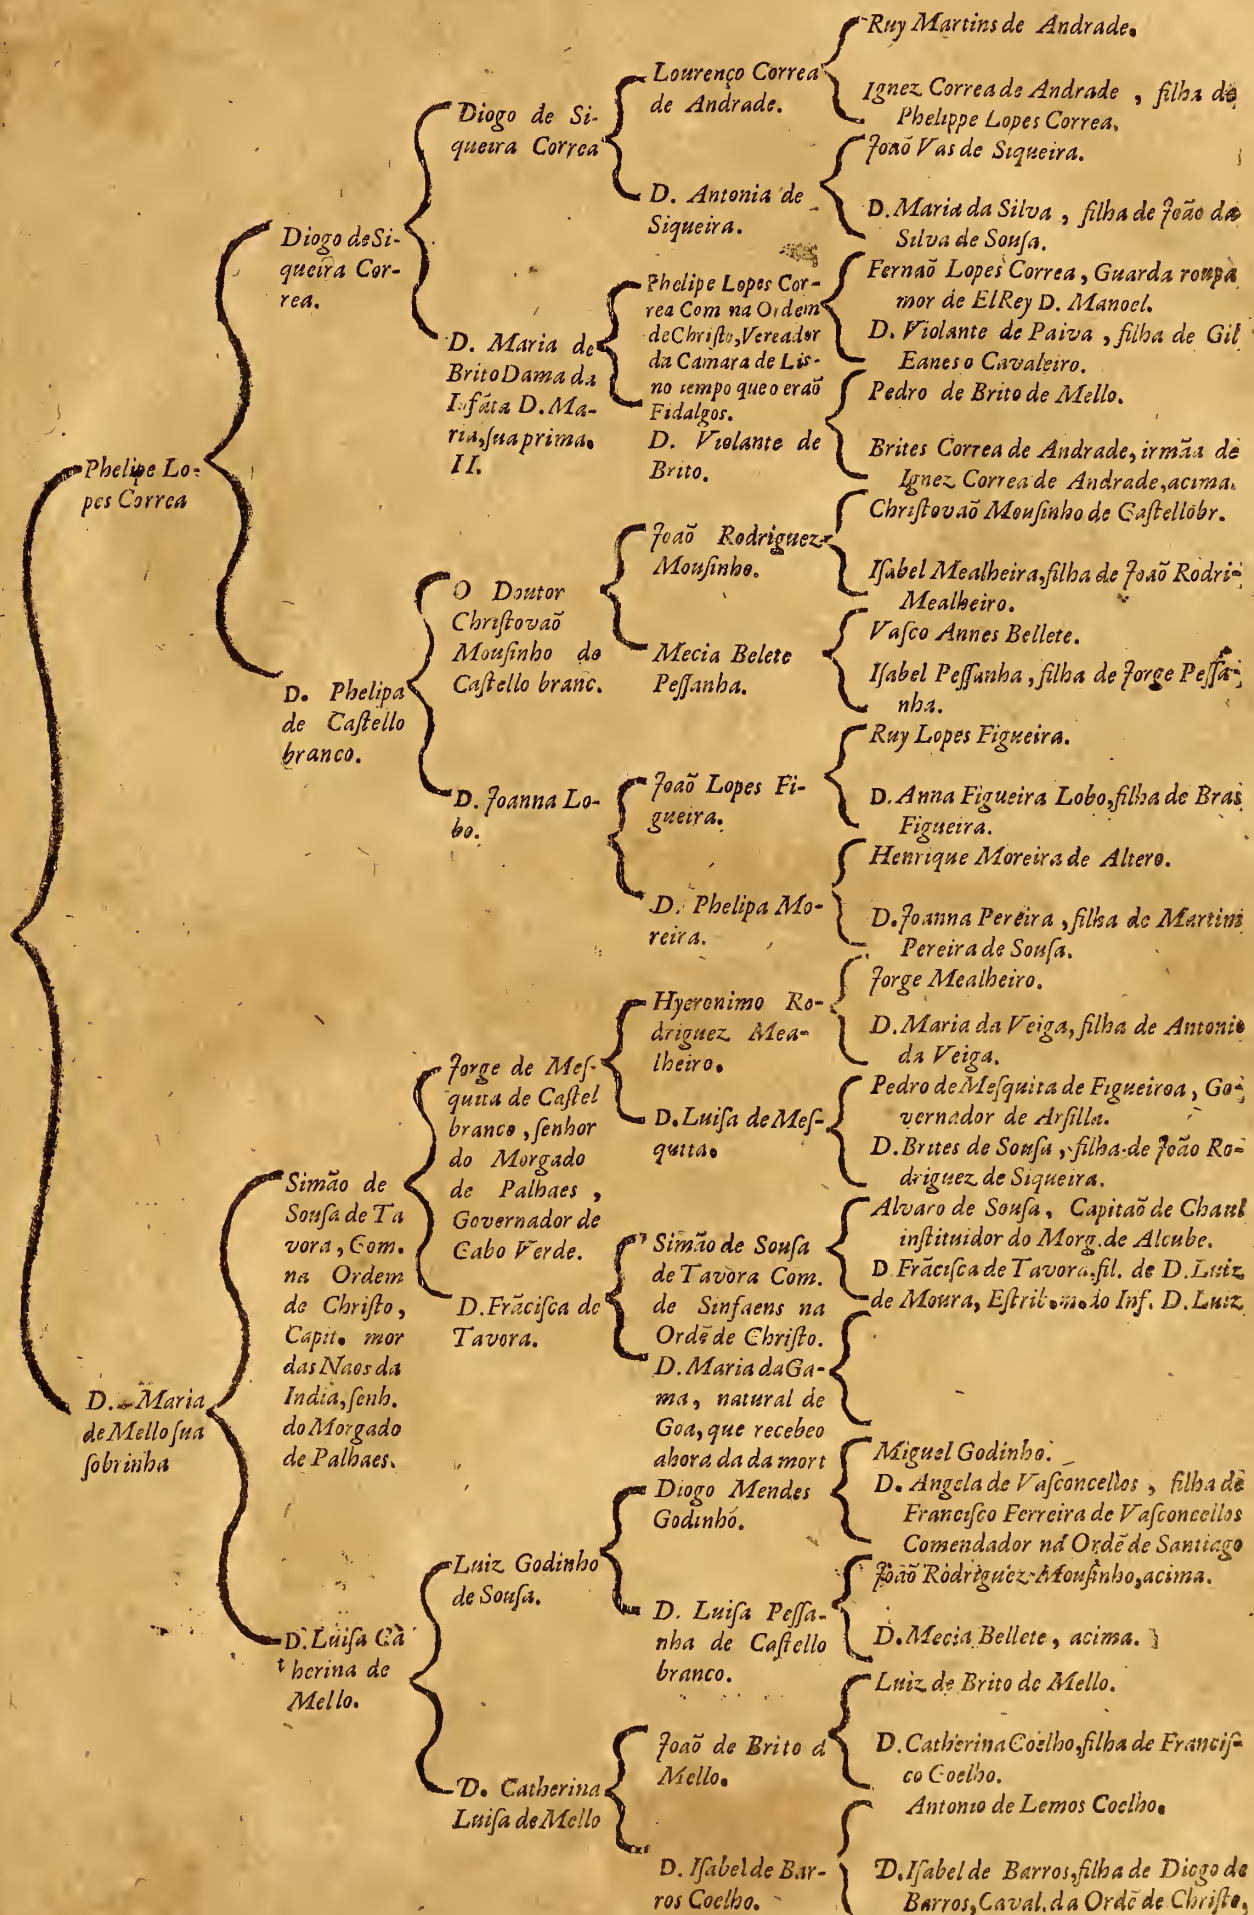 Phelipe Lo-
pes Correa
D. Maria
de Mello ſua
ſobrinha
Diogo de Si-
queira Cor-
rea.
D. Phelipa
de Caſtello
branco.
Simão de
Souſa de Ta
vora, Com.
na Ordem
de Chriſto,
Capit. mor
das Naos da
India, ſenh.
do Morgado
de Palhaes.
D. Luiſa Ca
therina de
Mello.
Diogo de Si-
queira Correa
D. Maria de
Brito Dama da
Infãta D. Ma-
ria, ſua prima.
II.
O Doutor
Chriſtovaõ
Mouſinho de
Caſtello branc.
D. Joanna Lo-
bo.
Jorge de Meſ-
quita de Caſtel
branco, ſenhor
do Morgado
de Palhaes,
Governador de
Cabo Verde.
D. Frãciſca de
Tavora.
Luiz Godinho
de Souſa.
D. Catherina
Luiſa de Mello
Lourenço Correa
de Andrade.
D. Antonia de
Siqueira.
Phelipe Lopes Cor-
rea Com na Ordem
de Chriſto, Vereador
da Camara de Lis-
no tempo que o eraõ
Fidalgos.
D. Violante de
Brito.
Joaõ Rodriguez
Mouſinho.
Mecia Belete
Peſſanha.
Joaõ Lopes Fi-
gueira.
D. Phelipa Mo-
reira.
Hyeronimo Ro-
driguez Mea-
lheiro.
D. Luiſa de Meſ-
quita.
Simão de Souſa
de Tavora Com.
de Sinfaens na
Ordẽ de Chriſto.
D. Maria da Ga-
ma, natural de
Goa, que recebeo
ahora da da mort
Diogo Mendes
Godinho.
D. Luiſa Peſſa-
nha de Caſtello
branco.
Joaõ de Brito d
Mello.
D. Iſabel de Bar-
ros Coelho.
Ruy Martins de Andrade.
Ignez Correa de Andrade, filha de
Phelippe Lopes Correa.
Joaõ Vas de Siqueira.
D. Maria da Silva, filha de João da
Silva de Souſa.
Fernaõ Lopes Correa, Guarda roupa
mor de ElRey D. Manoel.
D. Violante de Paiva, filha de Gil
Eanes o Cavaleiro.
Pedro de Brito de Mello.
Brites Correa de Andrade, irmãa de
Ignez Correa de Andrade, acima.
Chriſtovaõ Mouſinho de Caſtellobr.
Iſabel Mealheira, filha de Joaõ Rodri-
Mealheiro.
Vaſco Annes Bellete.
Iſabel Peſſanha, filha de Jorge Peſſa-
nha.
Ruy Lopes Figueira.
D. Anna Figueira Lobo, filha de Bras
Figueira.
Henrique Moreira de Altero.
D. Joanna Pereira, filha de Martim
Pereira de Souſa.
Jorge Mealheiro.
D. Maria da Veiga, filha de Antonio
da Veiga.
Pedro de Meſquita de Figueiroa, Go-
vernador de Arſilla.
D. Brites de Souſa, filha de João Ro-
driguez de Siqueira.
Alvaro de Souſa, Capitaõ de Chaul
inſtituidor do Morg. de Alcube.
D. Frãciſca de Tavora, fil. de D. Luiz
de Moura, Eſtrib. m. do Inf. D. Luiz
Miguel Godinho.
D. Angela de Vaſconcellos, filha de
Franciſco Ferreira de Vaſconcellos
Comendador na Ordẽ de Santiago
Joaõ Rodriguez Mouſinho, acima.
D. Mecia Bellete, acima.
Luiz de Brito de Mello.
D. Catherina Coelho, filha de Franciſ-
co Coelho.
Antonio de Lemos Coelho.
D. Iſabel de Barros, filha de Diogo de
Barros, Caval. da Ordẽ de Chriſto,